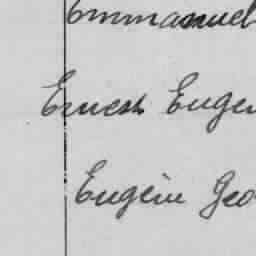 Emmanuel
Ernest Euge
Eugène Geo